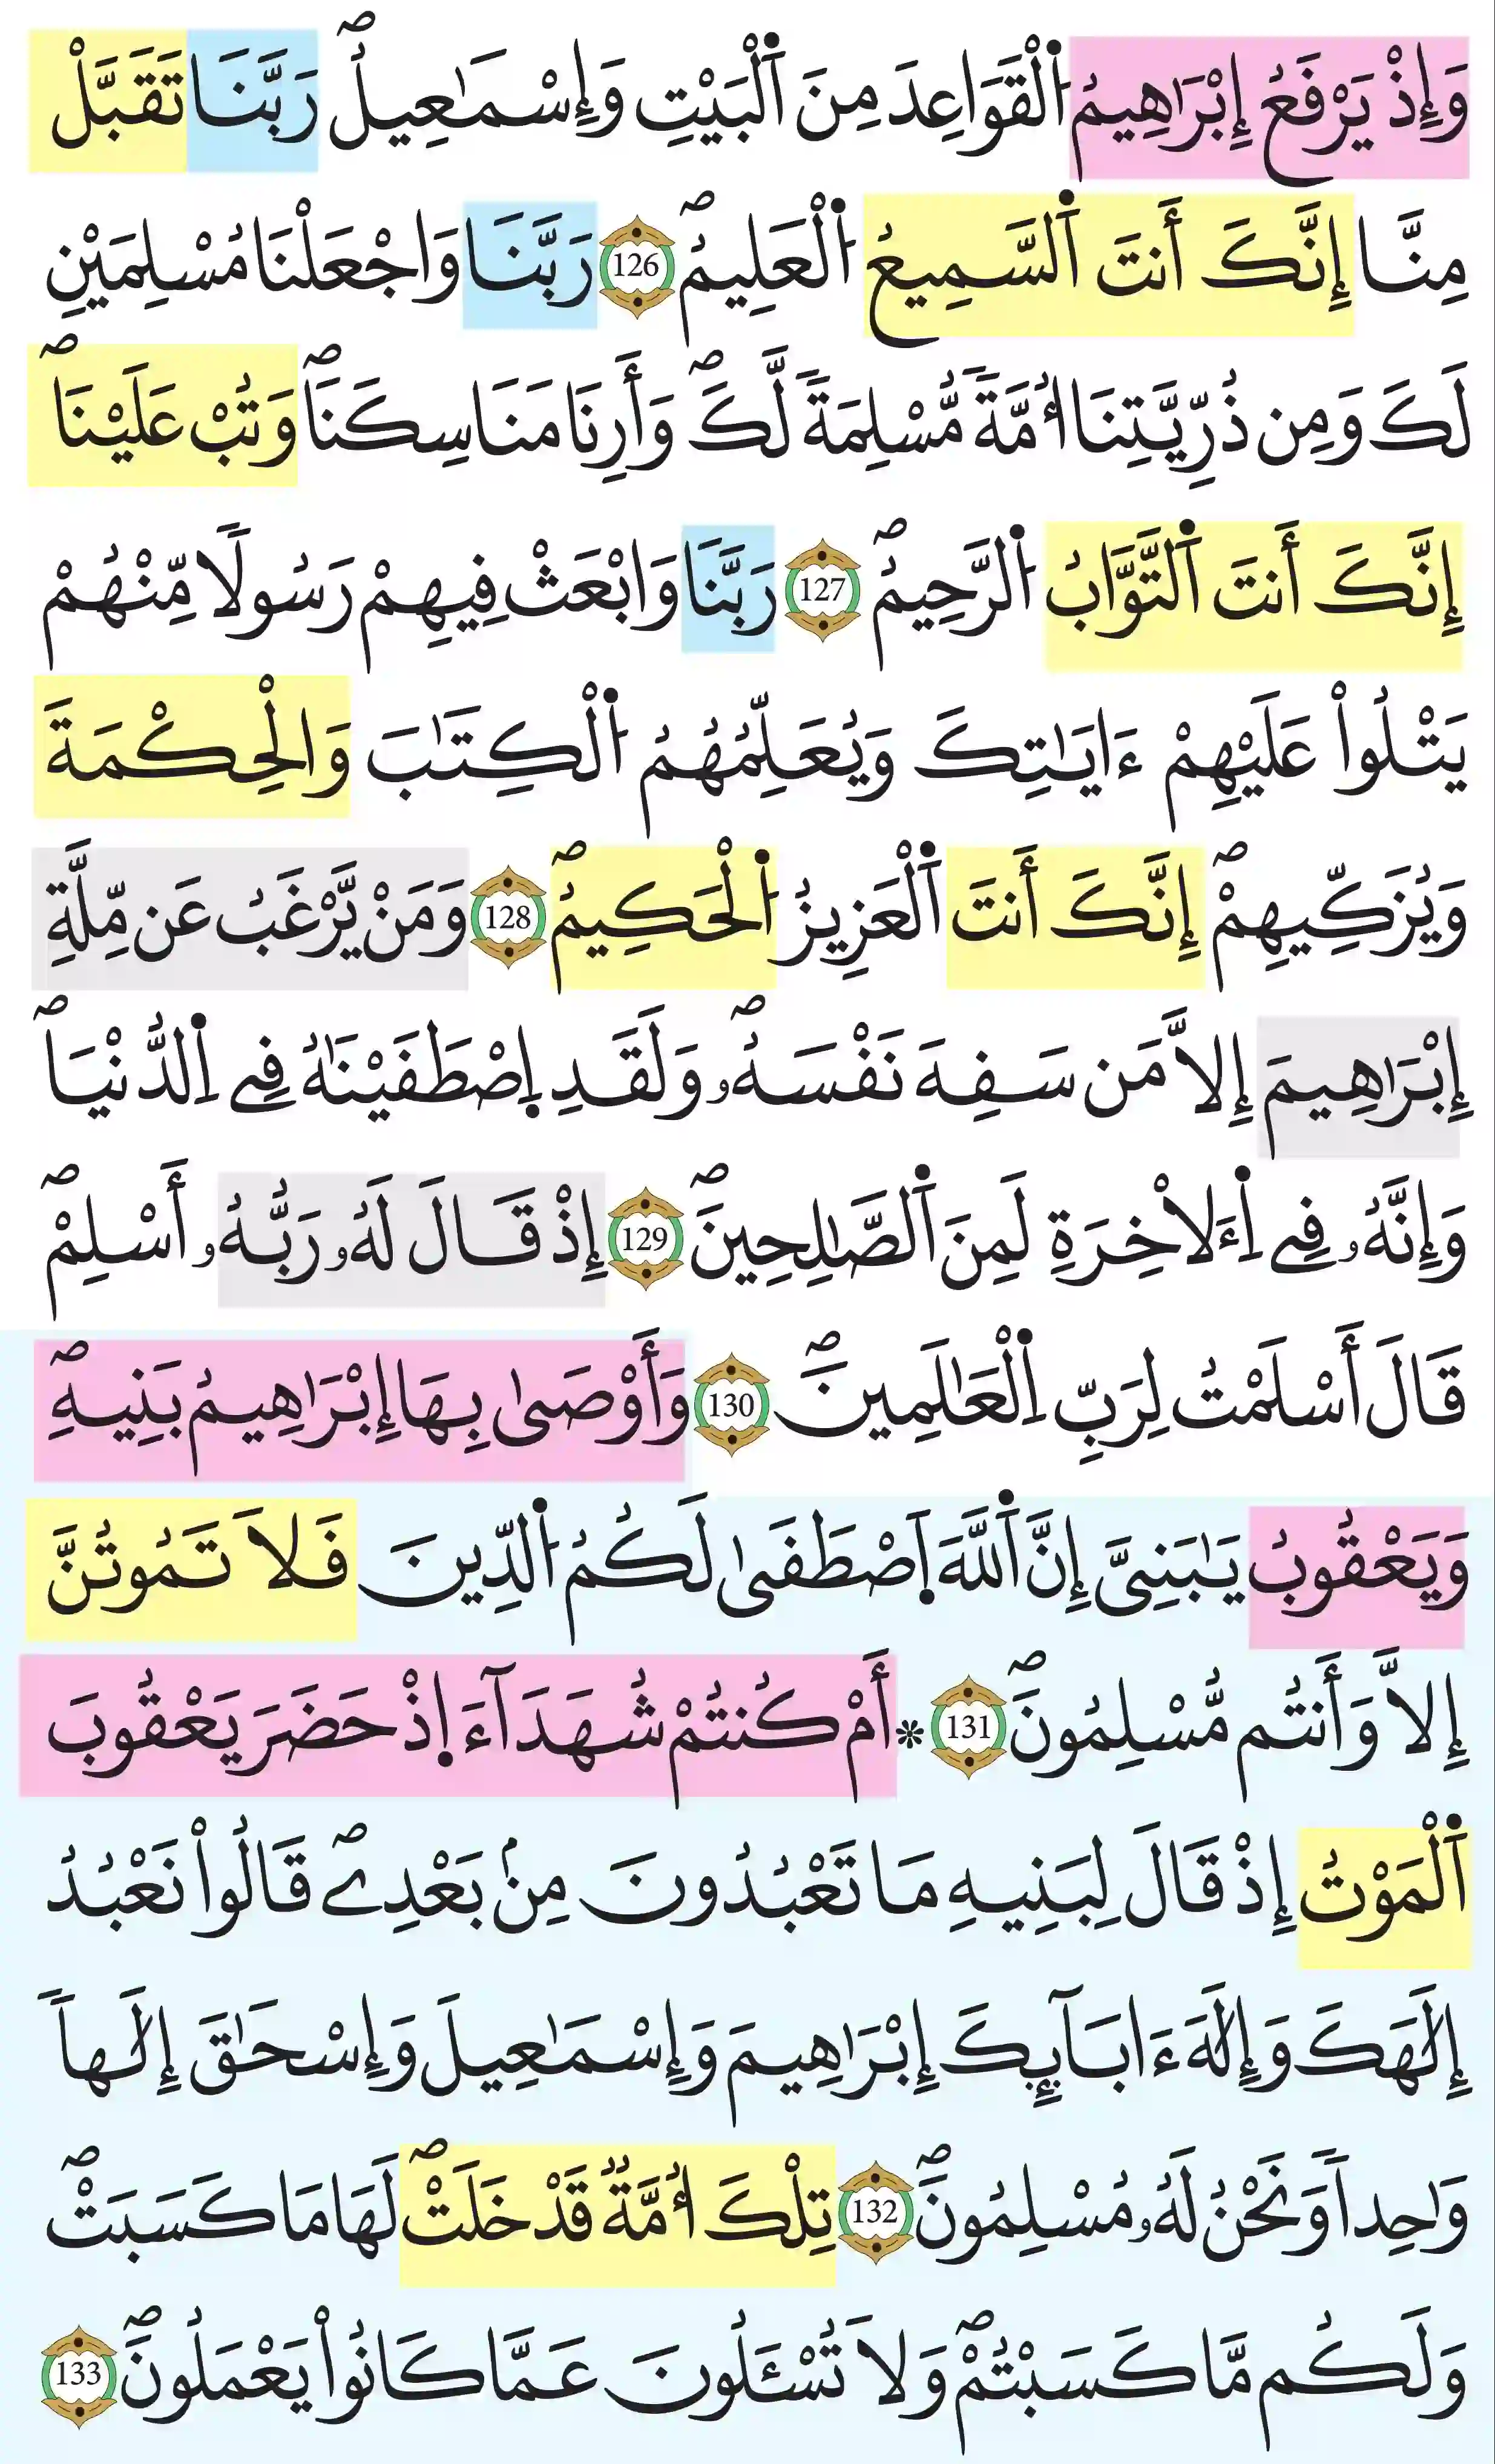 وَإِذْ يَرْفَعُ إِبْرَٰهِيمُ اُ۬لْقَوَاعِدَ مِنَ اَ۬لْبَيْتِ وَإِسْمَٰعِيلُۖ رَبَّنَا تَقَبَّلْ
مِنَّا إِنَّكَ أَنتَ اَ۬لسَّمِيعُ اُ۬لْعَلِيمُۖ 126 رَبَّنَا وَاجْعَلْنَا مُسْلِمَيْنِ
لَكَ وَمِن ذُرِّيَّتِنَا أُمَّةٗ مُّسْلِمَةٗ لَّكَۖ وَأَرِنَا مَنَاسِكَنَاۖ وَتُبْ عَلَيْنَاۖ
إِنَّكَ أَنتَ اَ۬لتَّوَّابُ اُ۬لرَّحِيمُۖ 127 رَبَّنَا وَابْعَثْ فِيهِمْ رَسُولاٗ مِّنْهُمْ
يَتْلُواْ عَلَيْهِمْ ءَايَٰتِكَ وَيُعَلِّمُهُمُ اُ۬لْكِتَٰبَ وَالْحِكْمَةَ
وَيُزَكِّيهِمْۖ إِنَّكَ أَنتَ اَ۬لْعَزِيزُ اُ۬لْحَكِيمُۖ 128 وَمَنْ يَّرْغَبُ عَن مِّلَّةِ
إِبْرَٰهِيمَ إِلاَّ مَن سَفِهَ نَفْسَهُۥۖ وَلَقَدِ اِ۪صْطَفَيْنَٰهُ فِے اِ۬لدُّنْيَاۖ
وَإِنَّهُۥ فِے اِ۬ءَلاْخِرَةِ لَمِنَ اَ۬لصَّٰلِحِينَۖ 129 إِذْ قَالَ لَهُۥ رَبُّهُۥ أَسْلِمْۖ
قَالَ أَسْلَمْتُ لِرَبِّ اِ۬لْعَٰلَمِينَۖ 130 وَأَوْصَىٰ بِهَا إِبْرَٰهِيمُ بَنِيهِۖ
وَيَعْقُوبُ يَٰبَنِيَّ إِنَّ اَ۬للَّهَ اَ۪صْطَفَىٰ لَكُمُ اُ۬لدِّينَ فَلاَ تَمُوتُنَّ
إِلاَّ وَأَنتُم مُّسْلِمُونَۖ 131 ۞ أَمْ كُنتُمْ شُهَدَآءَ اِ۪ذْ حَضَرَ يَعْقُوبَ
اَ۬لْمَوْتُ إِذْ قَالَ لِبَنِيهِ مَا تَعْبُدُونَ مِنۢ بَعْدِےۖ قَالُواْ نَعْبُدُ
إِلَٰهَكَ وَإِلَٰهَ ءَابَآئِكَ إِبْرَٰهِيمَ وَإِسْمَٰعِيلَ وَإِسْحَٰقَ إِلَٰهاٗ
وَٰحِداٗ وَنَحْنُ لَهُۥ مُسْلِمُونَۖ 132 تِلْكَ أُمَّةٞ قَدْ خَلَتْۖ لَهَا مَا كَسَبَتْۖ
وَلَكُم مَّا كَسَبْتُمْۖ وَلاَ تُسْـَٔلُونَ عَمَّا كَانُواْ يَعْمَلُونَۖ 133